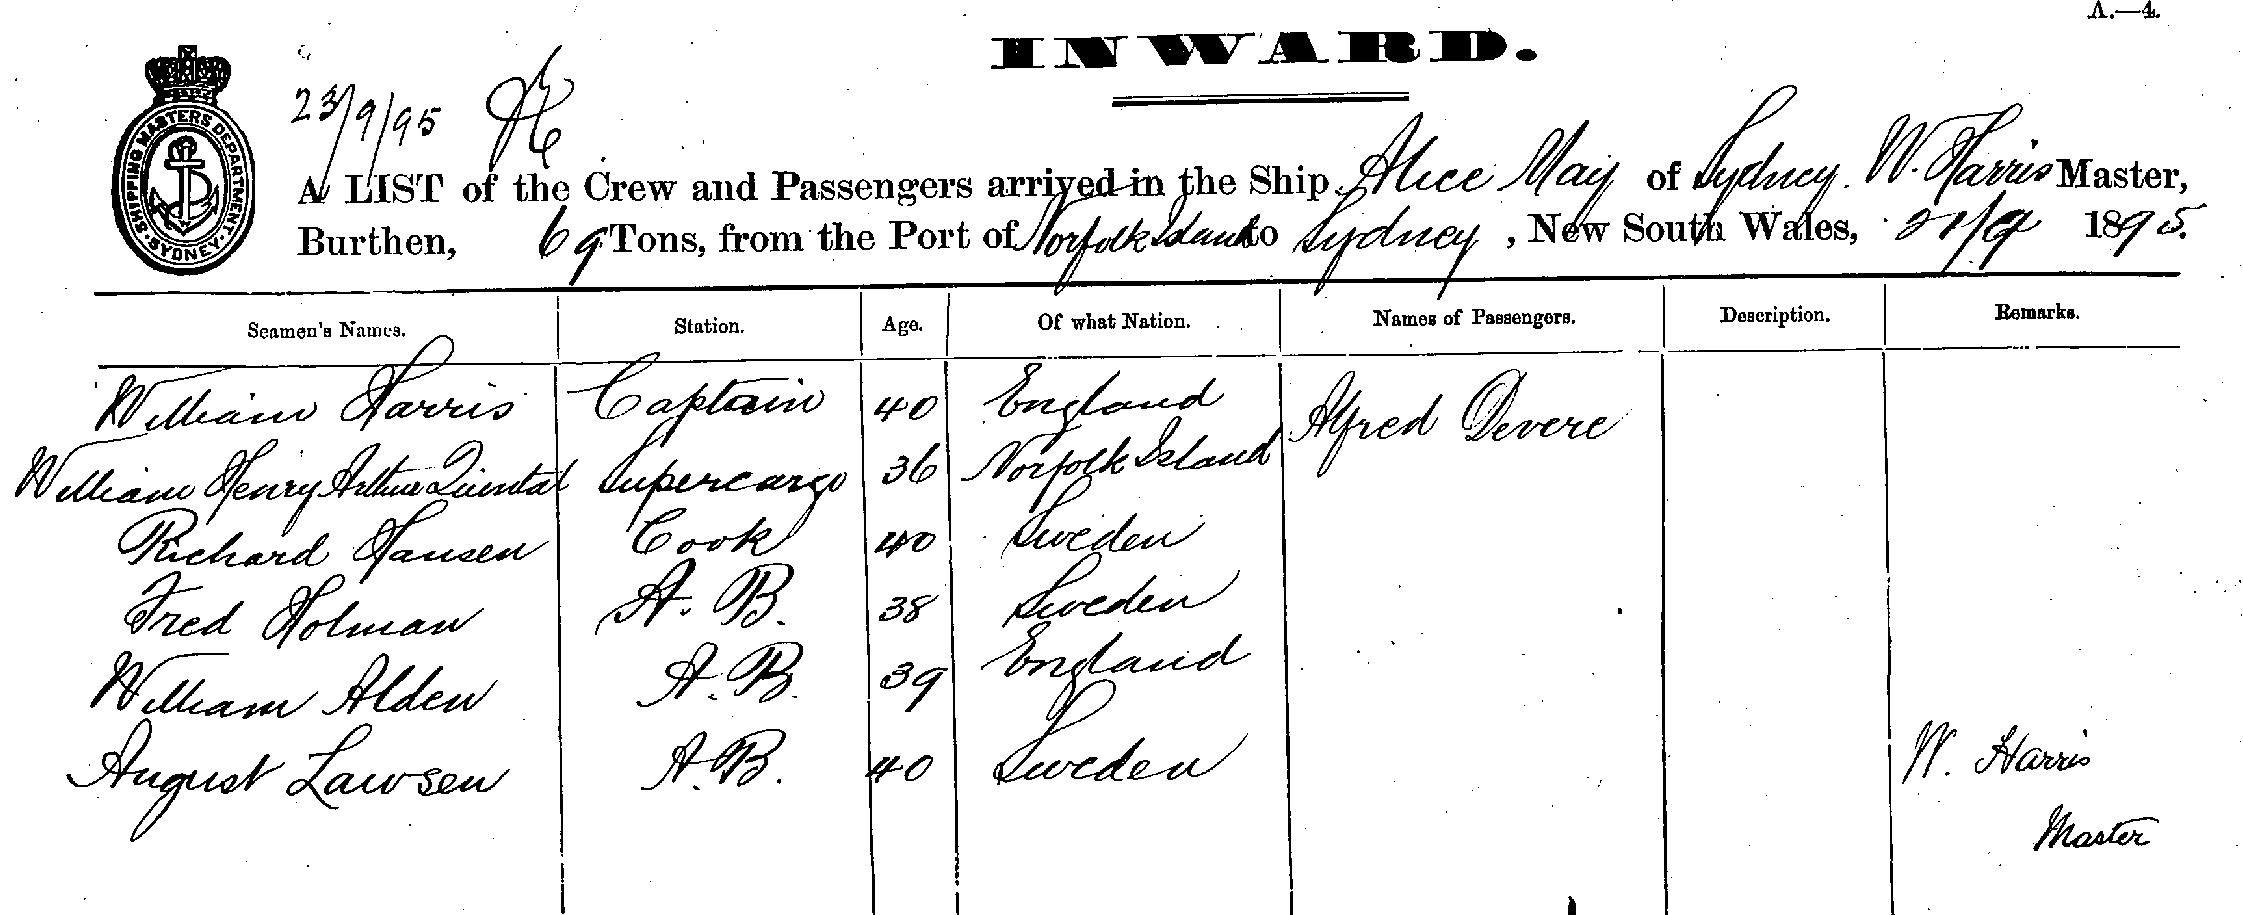 A.—4.
INWARD.
SHIPPING MASTERS DEPARTMENT. SYDNEY.
23/9/95
A LIST of the Crew and Passengers arrived in the Ship Alice May of Sydney. W. Harris Master,
Burthen, 69 Tons, from the Port of Norfolk Island to Sydney, New South Wales, 21/9 1895.
Seamen's Names. Station. Age. Of what Nation. Names of Passengers. Description. Remarks.
William Harris Captain 40 England Alfred Devere
William Henry Arthur Quintal Supercargo 36 Norfolk Island
Richard Hansen Cook 40 Sweden
Fred Holman A.B. 38 Sweden
William Alden A.B. 39 England
August Lawsen A.B. 40 Sweden W. Harris
Master